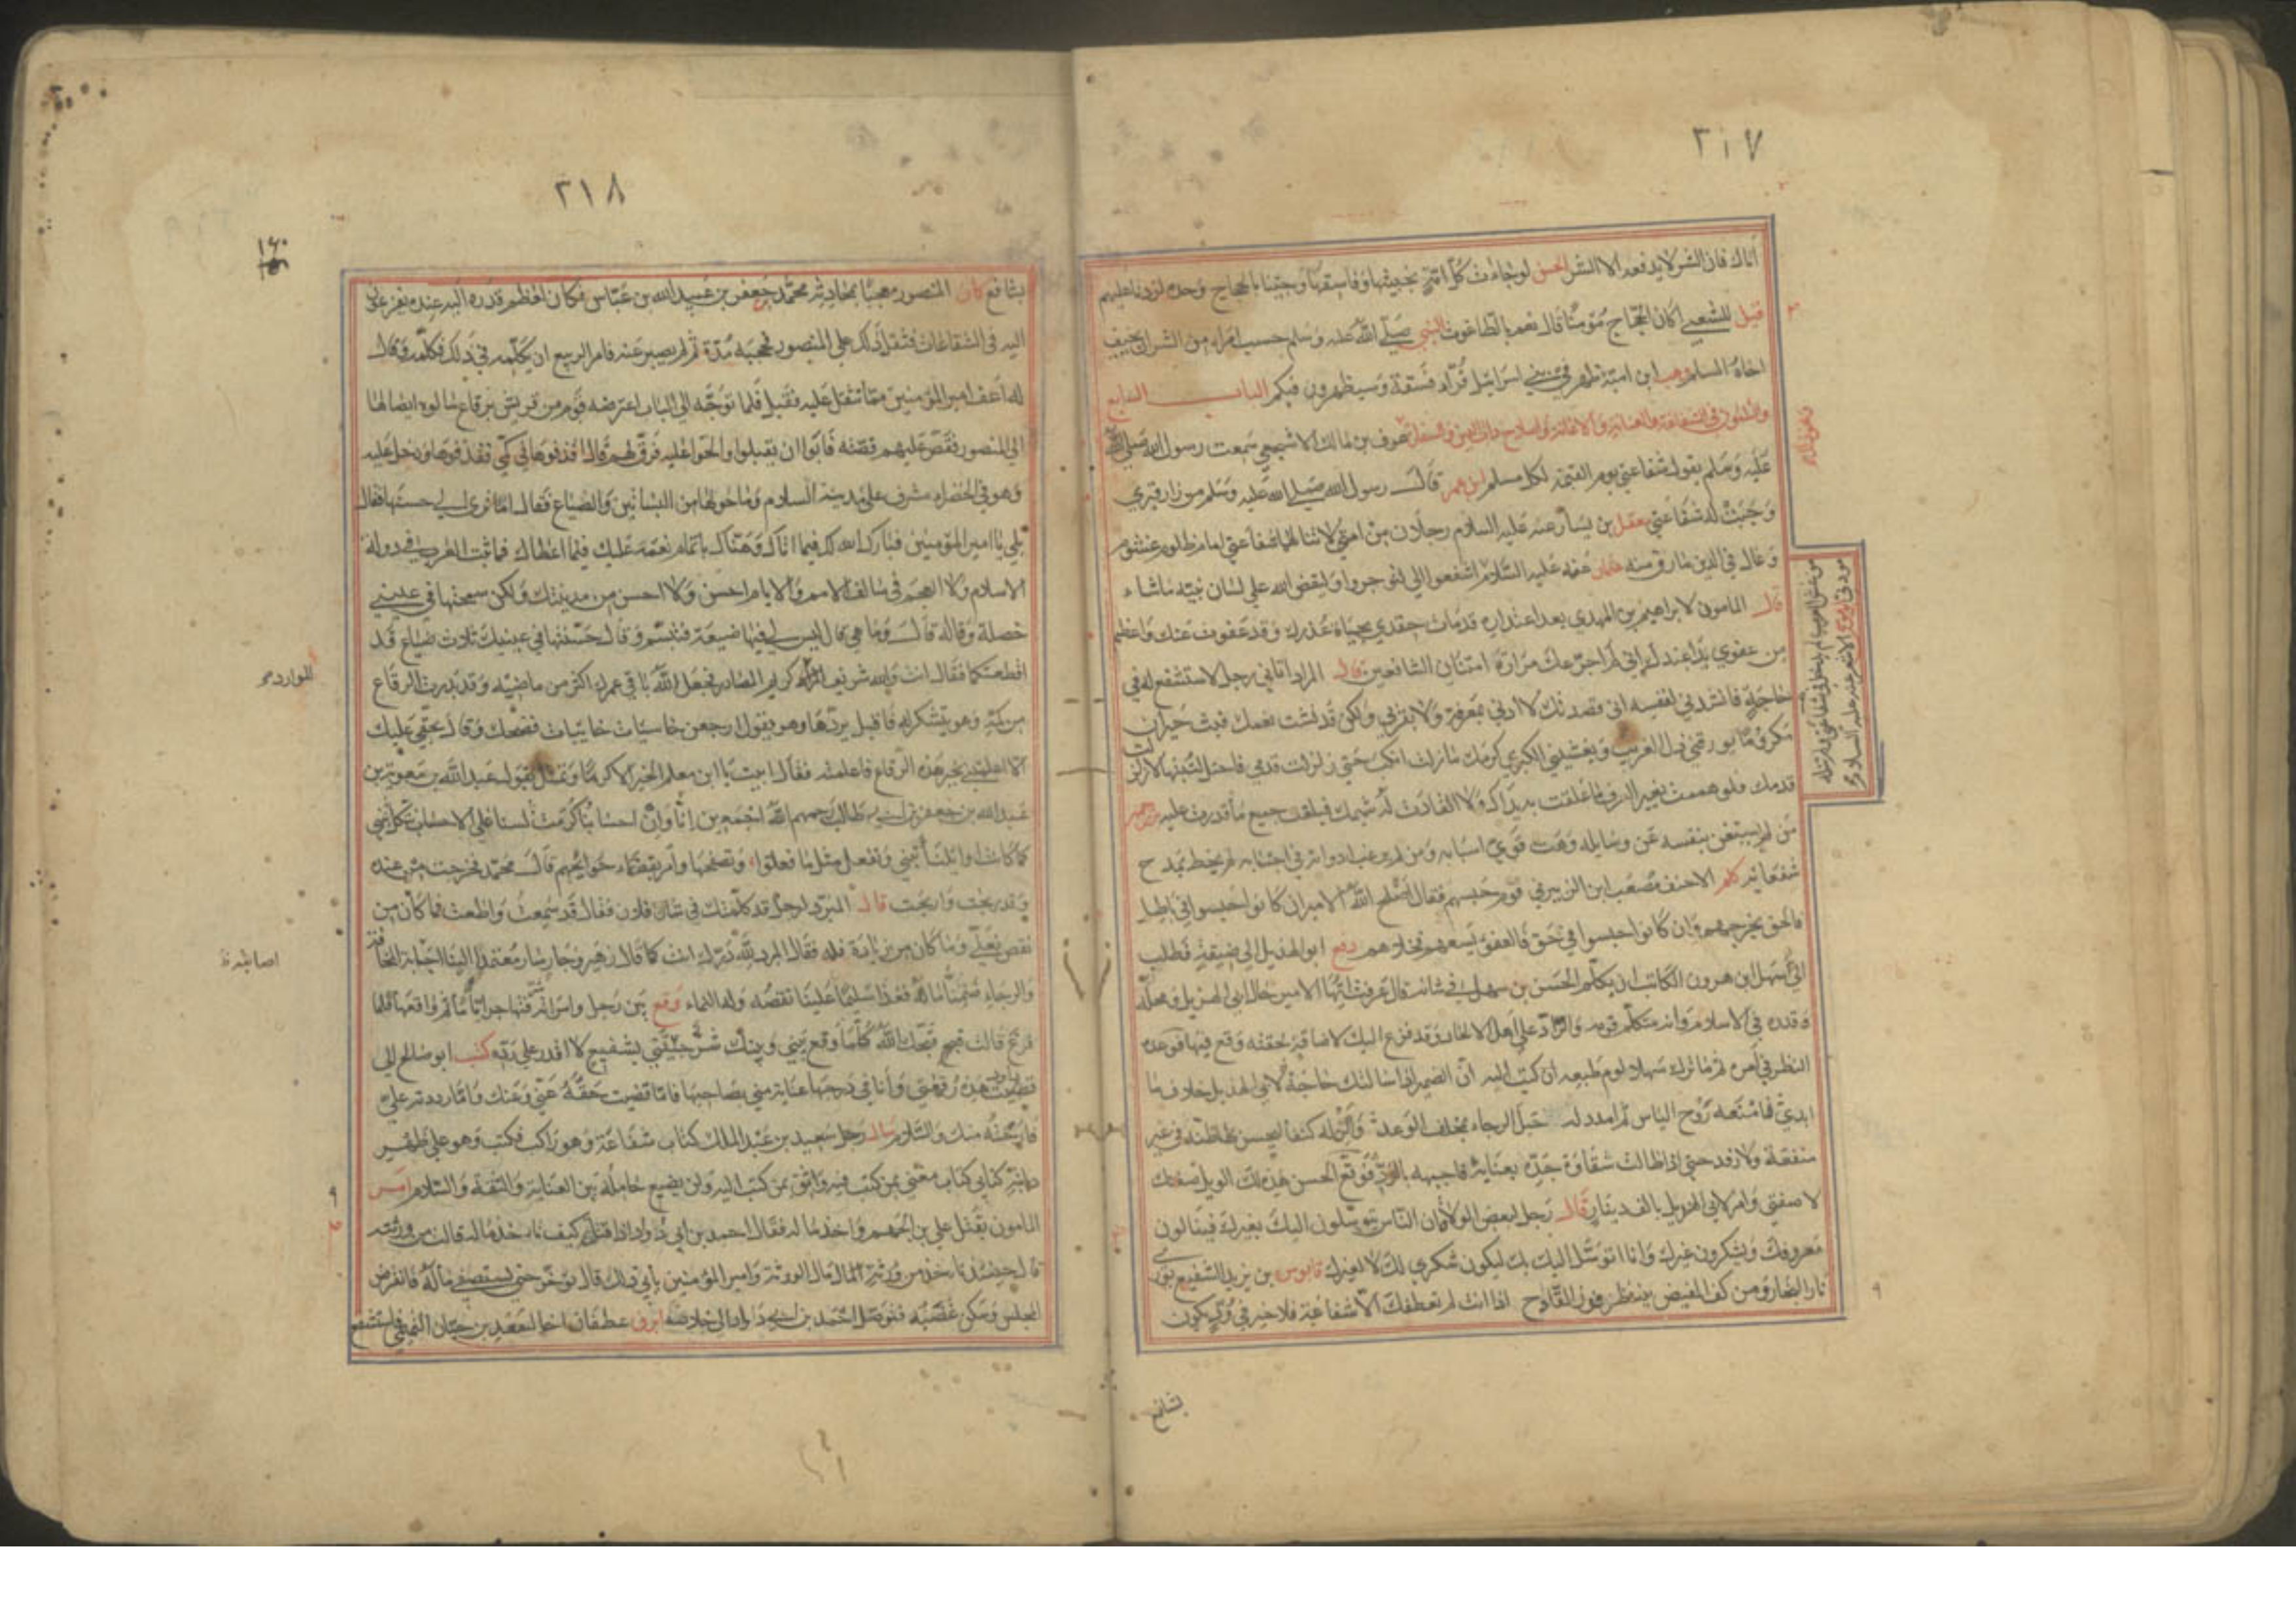 ٣١٧
أتاك فان الشر لا يدفعه الا الشر الحسن لو جاءت كل امة بخبيثها وفاسقها وجئنا بالحجاج وحده لزدنا عليهم
قيل للشعبي اكان الحجاج مؤمنا قال نعم بالطاغوت النبي صلى الله عليه وسلم حسب امرء من الشر ان يخيف
اخاه المسلم وهب ابن امية ظهر في بني اسرائيل قراء فسقة وسيظهرون فيكم الباب الرابع
والثلثون في الشفاعة والعناية والاعانة واصلاح ذات البين والسفارة عوف بن مالك الاشجعي سمعت رسول الله صلى الله
عليه وسلم يقول شفاعتي يوم القيمة لكل مسلم ابن عمر قال رسول الله صلى الله عليه وسلم من زار قبري
وجبت له شفاعتي معقل بن يسار عنه عليه السلام رجلان من امتي لا تنالهما شفاعتي امام ظلوم غشوم
وغال في الدين مارق منه عثمان عنه عليه السلام اشفعوا الي لتوجروا وليقض الله على لسان نبيه ما شاء
قال المامون لابراهيم بن المهدي بعد اعتذاره قد مات حقدي بحياة عذرك وقد عفوت عنك واعظم
من عفوي يدا عندك اني لم اجرعك مرارة امتنان الشافعين قال المبرد اتاني رجل لاستشفع له في
حاجة فانشدني لنفسه اني قصدتك لا ادلي بمعرفة ولا بقربي ولكن قد فشت نعمك فبت حيران
مكروبا يورقني ذل الغريب ويغشيني الكري كرمك ما زلت انكب حتى زلزلت قدمي فاحتل لتثبيتها لا زلزلت
قدمك فلو هممت بغير العرف ما علقت به يداك ولا انقادت له شيمك فبلغت جميع ما قدرت عليه بزرجمهر
من لم يستغن بنفسه عن وسايله وهت قوي اسبابه ومن لم يرغب اوداؤه في اجتنابه لم يحظ بمدح
شفعائه كلم الاحنف مصعب ابن الزبير في قوم حبسهم فقال اصلح الله الامير ان كانوا حبسوا في باطل
فالحق يخرجهم وان كانوا حبسوا في حق فالعفو يسعهم فخلاهم دفع ابو الهذيل الى ضيقة فطلب
الى سهل ابن هرون الكاتب ان يكلم الحسن بن سهل في شانه قال عرفت ايها الامير حال ابي الهذيل ومحله
وقدره في الاسلام وانه متكلم قومه والراد على اهل الالحاد وقد فزع اليك لاضاقة لحقته وقع فيها فوعده
النظر في امره ثم ما ترك سهلا لوم طبعه ان كتب اليه ان الضمير اذا سالتك حاجة لابي الهذيل خلاف ما
ابدي فامنعه روح الياس ثم امدد له حبل الرجاء بمخلف الوعد والن له كنفا ليحسن ظنه في غير
منفعة ولا رفد حتى اذا طالت شقاوة جده بعناية فاجبهه بالرد فوقع الحسن هذه لك الويل صفتك
لا صفتي وامر لابي الهذيل بالف دينار قال رجل لبعض الولاة ان الناس يتوسلون اليك بغيرك فينالون
معروفك ويشكرون غيرك وانا اتوسل اليك بك ليكون شكري لك لا لغيرك قابوس بن يزيد الشفيع يوري
نار النجاح ومن كف المفيض ينتظر فوز القداح اذا انت لم تعطفك الا شفاعة فلا خير في ود يكون
مودتي
من غش العرب لم يدخل في شفاعتي ولم تنله
بشافع
٣١٨
بشافع كان المنصور معجبا بمحادثة محمد بن جعفر بن عبيد الله بن عباس فكان لعظم قدره اليه عنده يفزع
اليه في الشفاعات فثقل ذلك على المنصور فحجبه مدة ثم لم يصبر عنه فامر الربيع ان يكلمه في ذلك فكلمه وقال
له اعف امير المؤمنين مما تثقل عليه فقبل فلما توجه الى الباب اعترضه قوم من قريش برقاع سالوه ايصالها
الى المنصور فقص عليهم قصته فابوا ان يقبلوا والحوا عليه فرق لهم قال اقذفوها في كمي فقذفوها ودخل عليه
وهو في الخضراء مشرف على مدينة السلام وما حولها من البساتين والضياع فقال اما ترى الى حسنها فقال
بلي يا امير المؤمنين فبارك الله لك فيما اتاك وهناك باتمام نعمته عليك فيما اعطاك فما بنت العرب في دولة
الاسلام ولا العجم في سالف الامم والايام احسن ولا احسن من مدينتك ولكن سمجتها في عيني
خصلة وقال له قال وما هي قال ليس لي فيها ضيعة فتبسم وقال حسنتها في عينيك ثلاث ضياع قد
اقطعتكها فقال انت والله شريف الموارد كريم المصادر فجعل الله باقي عمرك اكثر من ماضيه وقد بدرت الرقاع
من كمه وهو يتشكر له فاقبل يردها وهو يقول ارجعن خاسيات خايبات فضحك وقال بحقي عليك
الا اعلمتني بخبر هذه الرقاع فاعلمته فقال ابيت يا ابن معلم الخير الا كرما وتمثل بقول عبد الله بن معوية بن
عبد الله بن جعفر بن ابي طالب رحمهم الله اجمعين انا وان احسابنا كرمت لسنا على الاحساب نتكل نبني
كما كانت اوائلنا تبني ونفعل مثل ما فعلوا وتصفحها وامر بقضاء حوائجهم قال محمد فخرجت من عنده
وقد ربحت واربحت قال المبرد لرجل قد كلمتك في شان فلان فقال قد سمعت واطعت فما كان من
نقص فعلي وما كان من زيادة فله فقال المبرد لله درك انت كما قال زهير وجار سار معتمدا الينا اجاءته المخافة
والرجاء ضمنا ماله فغدا سليما علينا نقصه وله النماء وقع بين رجل وامراته فتهاجرا اياما ثم واقعها فلما
فرغ قالت قبحك الله كلما وقع بيني وبينك شر جئتني بشفيع لا اقدر على رده كتب ابو صالح الى
هذه رقعتي وانا في درجها عناية مني بصاحبها فاما قضيت حقه عني وعنك واما رددته علي
فارحته منك والسلام سال رجل سعيد بن عبد الملك كتاب شفاعة وهو راكب فكتب وهو على ظهر
دابته كتابي كتاب معتني بمن كتب فيه واثق بمن كتب اليه ولن يضيع حامله بين العناية والثقة والسلام امر
المامون بقتل علي بن الجهم واخذ ماله فقال احمد بن ابي داود اذا قتلته كيف تاخذ ماله قال من ورثته
قال حينئذ تاخذ من ورثته المال مال الورثة وامير المؤمنين يابى ذلك قال يوخر حتى يستصفى ماله فانقرض
المجلس وسكن غضبه فتوصل احمد بن ابي داود الى خلاصه عطفان اخا
الموارد صح
اصابته